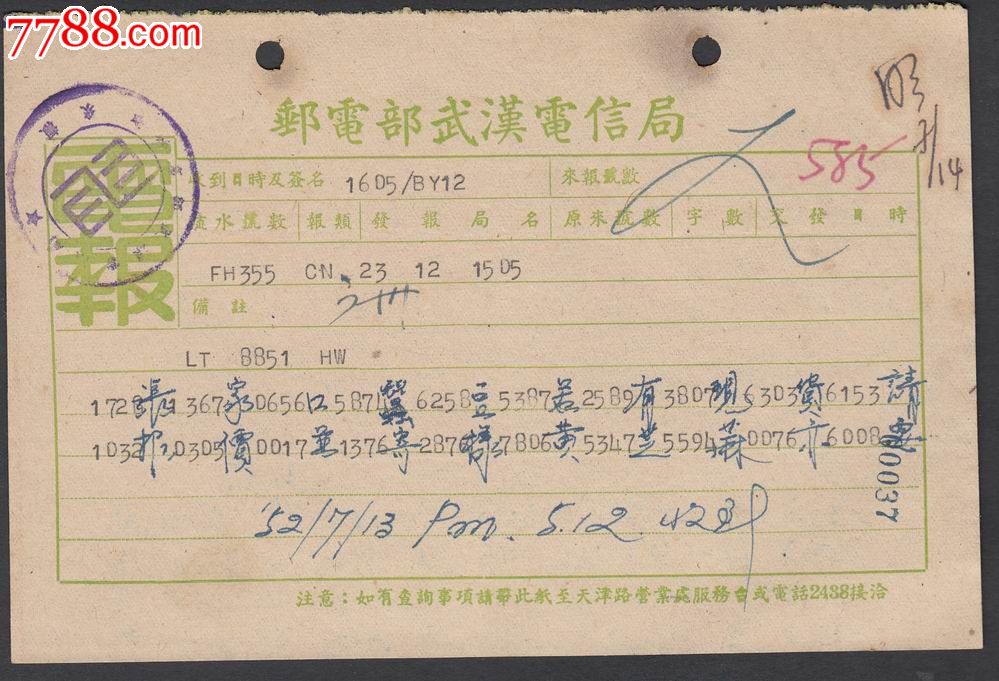 7788.com
郵電部武漢電信局
電報
收到日時及簽名 1605/BY12 來報號數 585
7/14
流水號數 報類 發報局名 原來號數 字數 交發日時
FH355 CN 23 12 1505
備註
LT 8851 HW
172 張 367 家 0656 口 587 蠶 6258 豆 5387 若 2589 有 3807 現 6303 貨 6153 請
1032 報 0305 價 0017 並 1376 寄 2876 樣 7806 黃 5347 芝 5594 蔴 0076 亦 6008 要
00037
'52/7/13 Pm. 5.12
注意：如有查詢事項請帶此紙至天津路營業處服務台或電話2438接洽